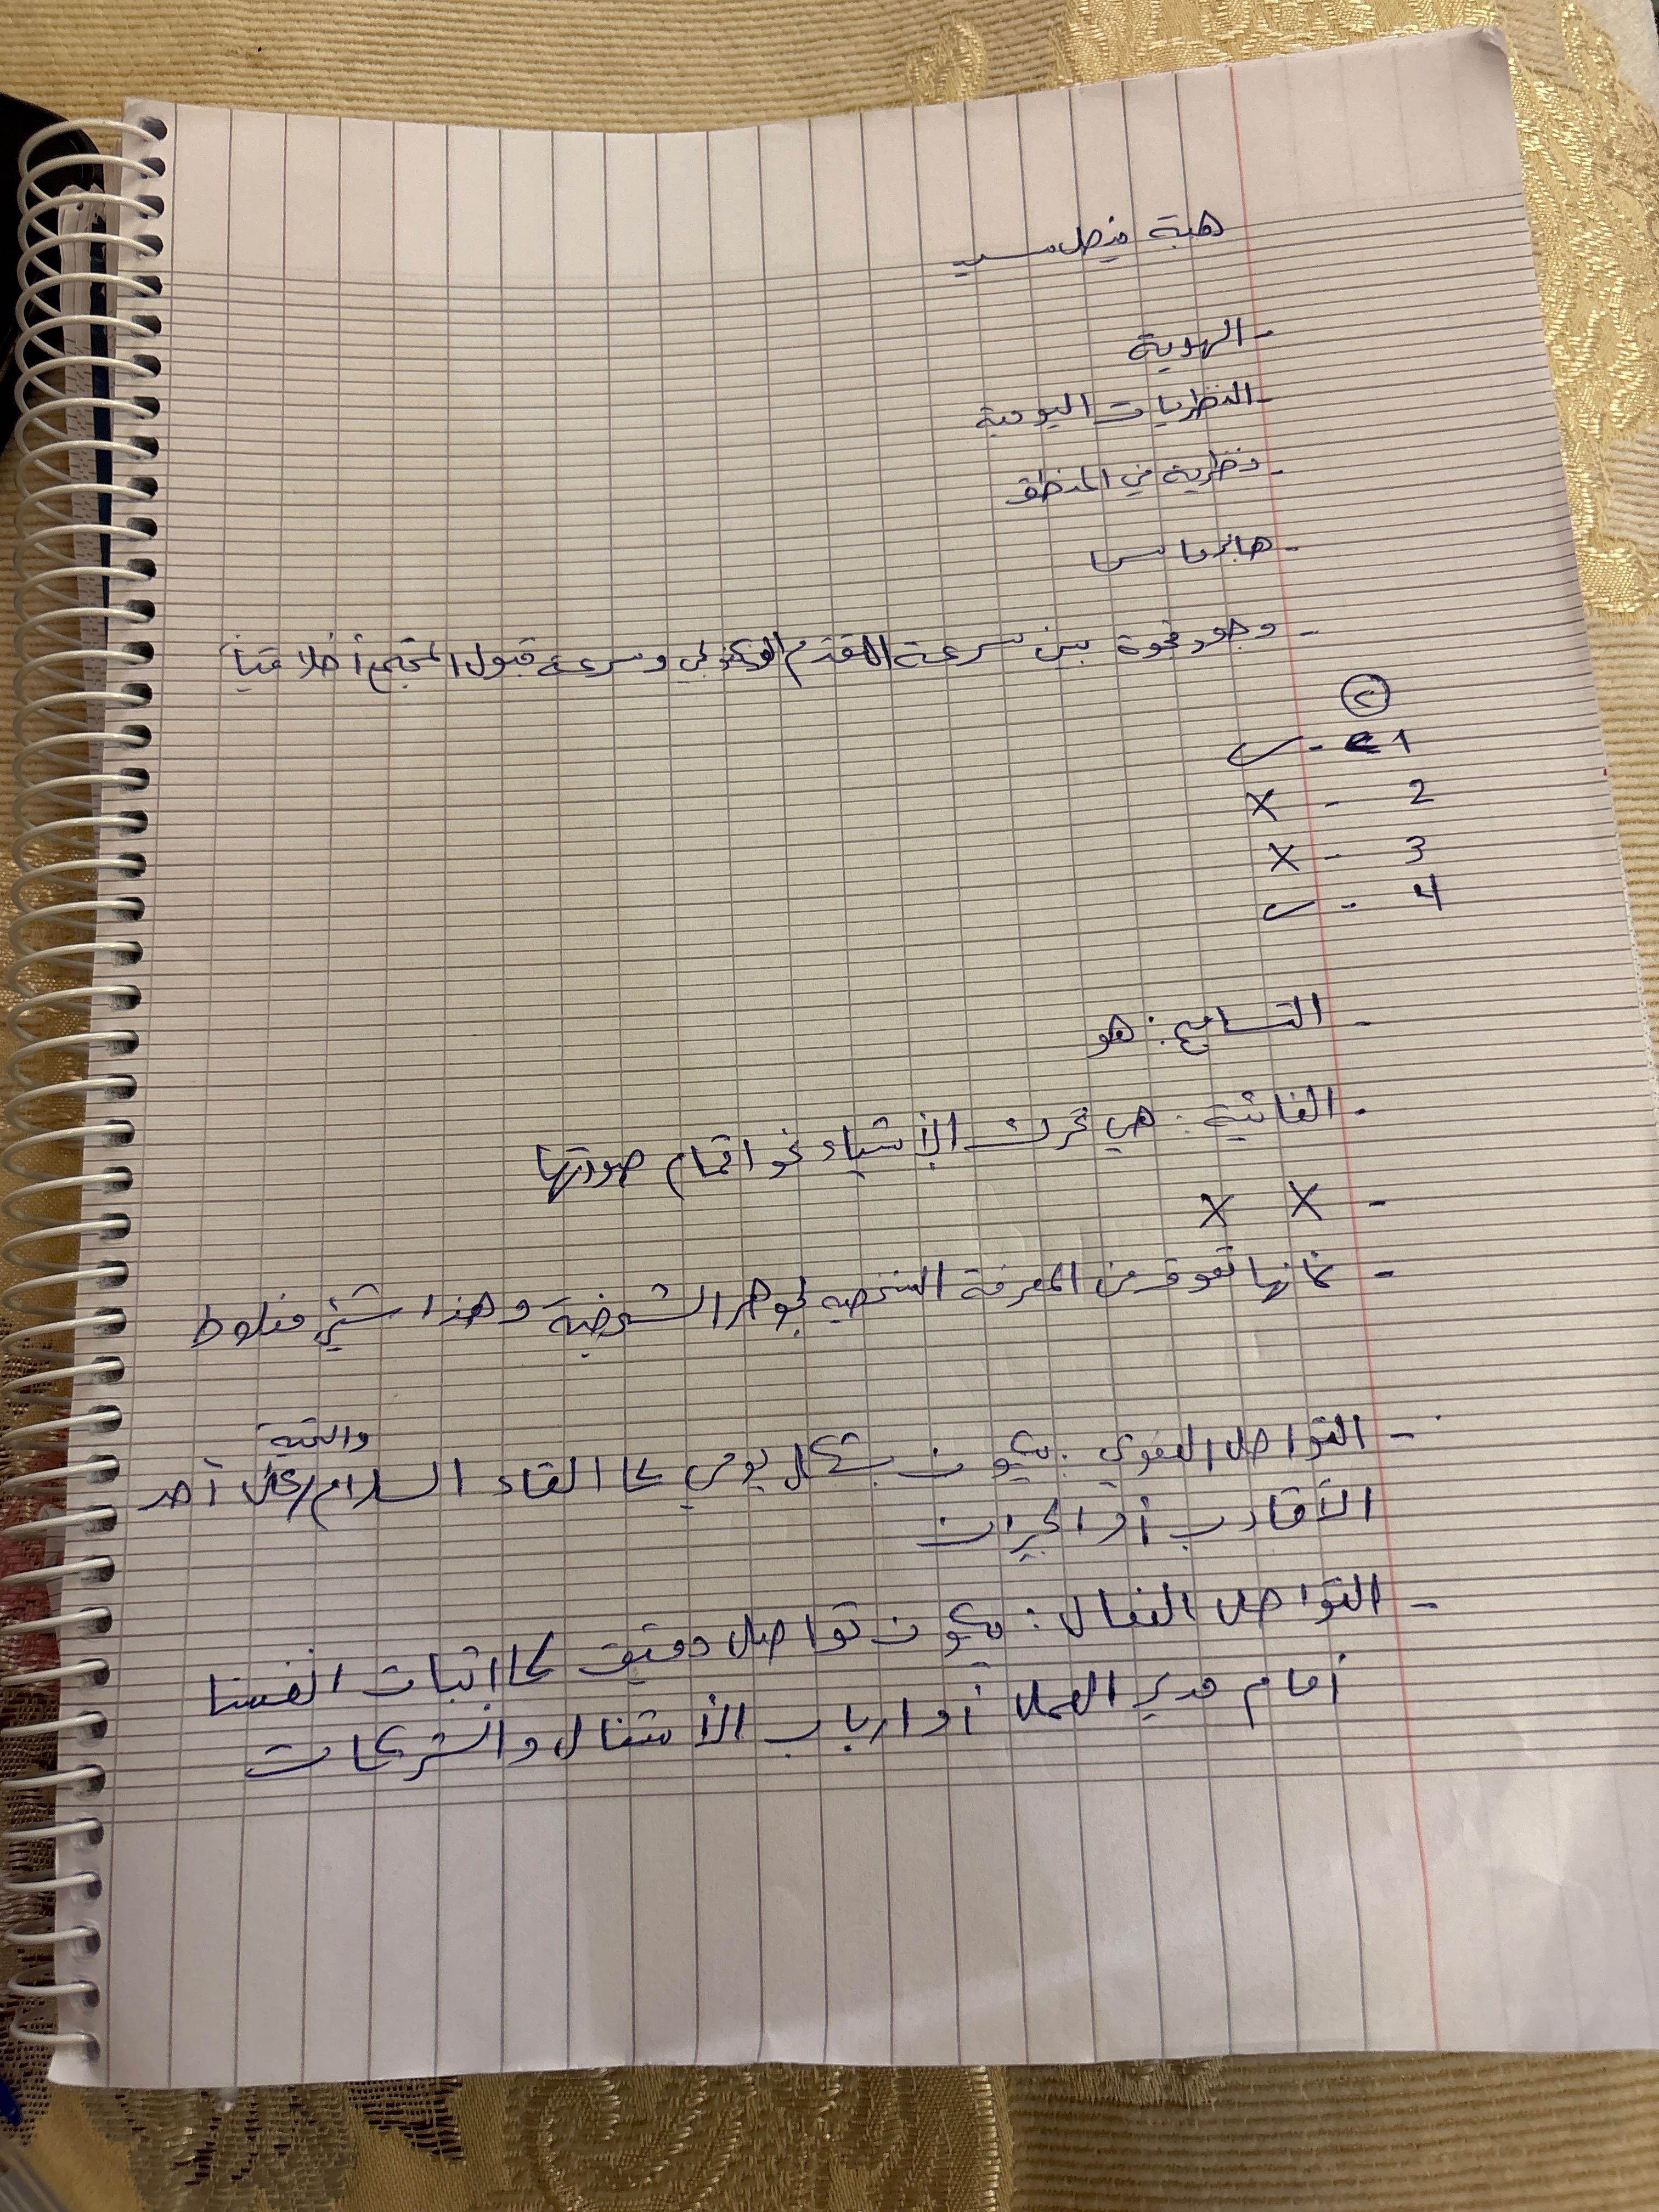 هبة فيصل
- الهوية
- النظريات اليومية
- نظرية في المنطق
- هابرماس
- وجود فجوة بين سرعة التقدم التكنولوجي وسرعة قبول المجتمع أخلاقياً
1 - ✓
2 - X
3 - X
4 - ✓
- التسامح : هو
- الغائية : هي تحرك الأشياء نحو اتمام صورتها
- X X
- تفوق من المعرفة الشخصية لجوهر الشخصية وهذا شيئ مغلوط
والتحية
- التواصل العفوي : يكون بشكل يومي كا القاء السلام على أحد
الأقارب أو الجيران
- التواصل الفعال : يكون تواصل دقيق كا اثبات انفسنا
أمام مدير العمل أو ارباب الأشغال والشركات